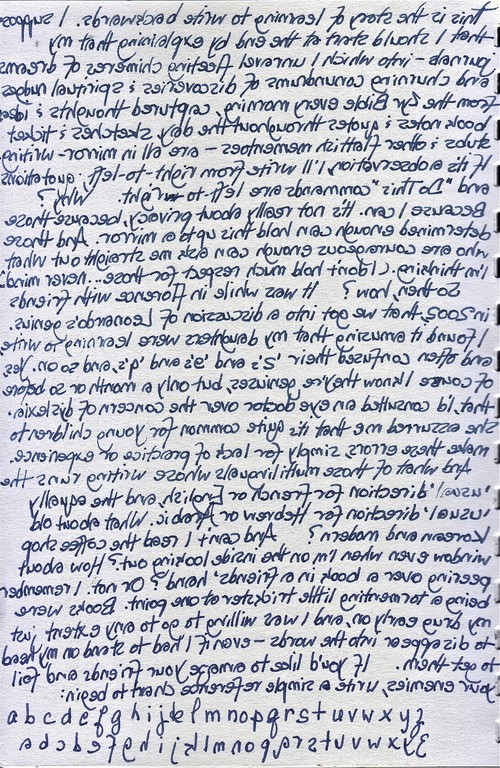 This is the story of learning to write backwards. I suppose
that I should start at the end by explaining that my
journals – into which I unravel fleeting chimeras of dreams
and churning conundrums of discoveries & spiritual nudges
from the Bible every morning, captured thoughts & ideas,
book notes & quotes throughout the day, sketches & ticket
stubs & other flattish mementoes – are all in mirror-writing.
If it's observation, I'll write from right-to-left, quotations
and "Do This" commands are left-to-right. Why?
Because I can. It's not really about privacy, because those
determined enough can hold this up to a mirror. And those
who are courageous enough can ask me straight out what
I'm thinking. (I don't hold much respect for those... never mind.)
So then, how? It was while in Florence with friends
in 2005, that we got into a discussion of Leonardo's genius.
I found it amusing that my daughters were learning to write
and often confused their 'S's and 'a's and 'p's, and so on. Yes,
of course I know they're geniuses, but only a month or so before
that, I'd consulted an eye doctor over the concern of dyslexia.
She assured me that it's quite common for young children to
make these errors, simply for lack of practice or experience.
And what of those multilinguals whose writing runs the
'usual' direction for French or English, and the equally
'usual' direction for Hebrew or Arabic. What about old
Korean and modern? And can't I read the coffee shop
window even when I'm on the inside looking out? How about
peering over a book in a friends' hand? Or not. I remember
being a tormenting little trickster to one point. Books were
my drug early on, and I was willing to go to any extent just
to disappear into the words – even if I had to stand on my head
to get them. If you'd like to amaze your friends and foil
your enemies, write a simple reference chart to begin:
a b c d e f g h i j k l m n o p q r s t u v w x y z
a b c d e f g h i j k l m n o p q r s t u v w x y z